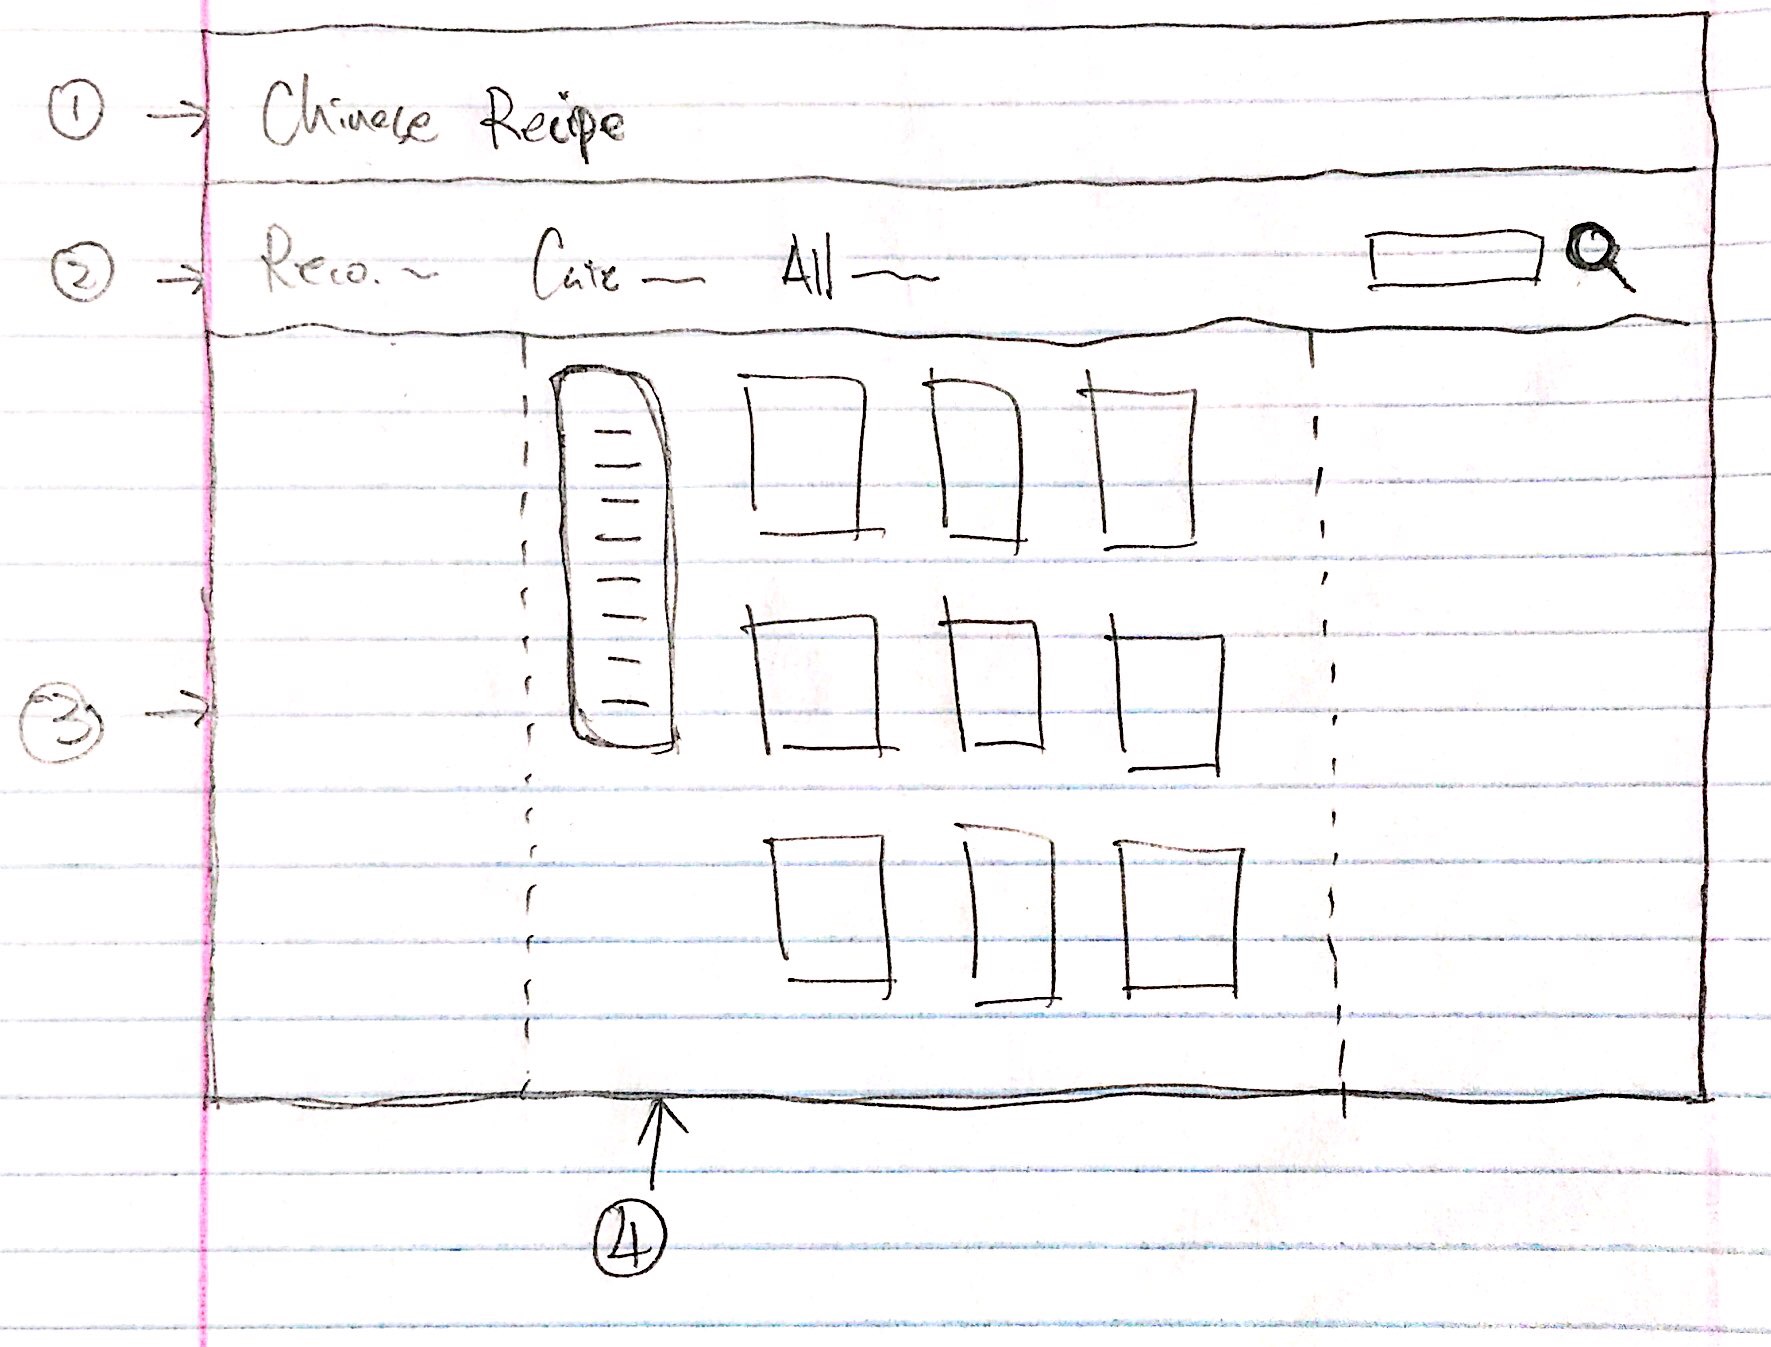 ① → Chinese Recipe
② → Reco. ~ All ~
③ →
④